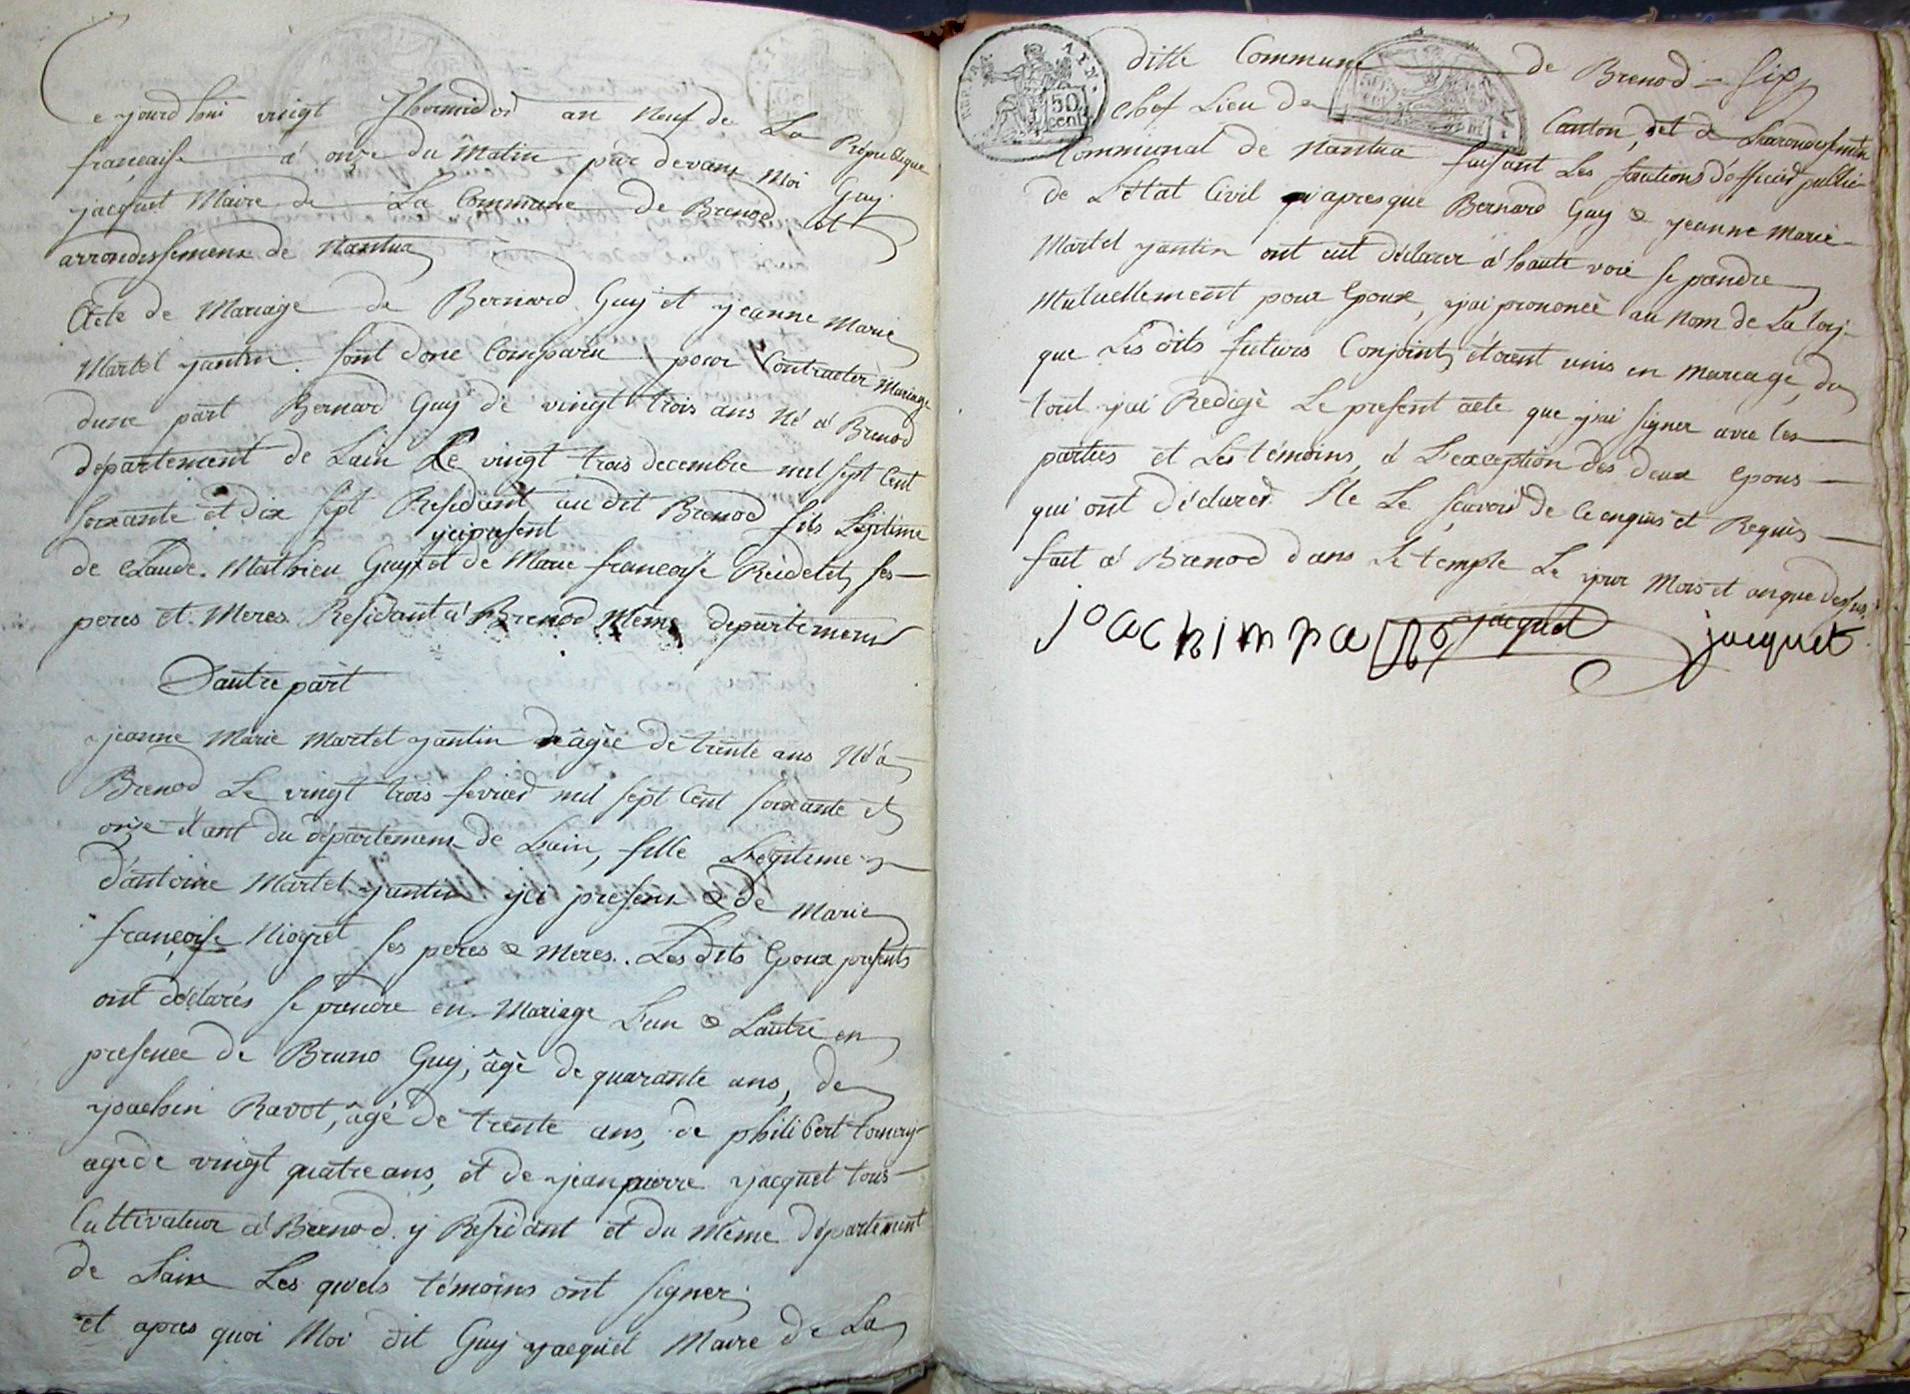 Cejourdhui vingt Thermidor an neuf de La République
française à onze du Matin par devant Moi Guy
jacquet Maire de La Commune de Brenod et
arrondissement de Nantua
Acte de Mariage de Bernard Guy et jeanne Marie
Martel yantin. sont donc Comparu pour Contracter Mariage
dune part Bernard Guy de vingt trois ans Né à Brenod
département de Lain Le vingt trois decembre mil sept Cent
soixante et dix sept Residant au dit Brenod fils Légitime
yci present
de Claude Mathieu Guy et de Marie françoise Reidelet, ses
peres et Meres Residant à Brenod Même departement
Dautre part
jeanne Marie Martel yantin âgée de trente ans Né à
Brenod Le vingt trois fevrier mil sept Cent soixante et
onze étant du département de Lain, fille Légitime
d'antoine Martel yantin yci present & de Marie
françoise Niogret ses peres & Meres. Les dits Epoux presents
ont déclarés se prendre en Mariage Lun & Lautre en
presence de Bruno Guy, âgé de quarante ans, de
yoachin Ravot, âgé de trente ans, de philibert
agé de vingt quatre ans, et de jean pierre yacquet tous
Cultivateur à Brenod y Residant et du Même département
de Lain Les quels témoins ont signer
et apres quoi Moi dit Guy yacquet Maire de La
REP. FRA.
AYN.
50
cent
ditte Commune de Brenod - six
chef Lieu de Canton, et de Larondissement
Communal de Nantua faisant Les fonctions d'officier public
de L'état Civil apres que Bernard Guy & yeanne Marie
Martel yantin ont eut déclarer à haute voie se prandre
Mutuellement pour Epoux, yai prononcè au Nom de La loy
que Les dits futurs Conjoints étoient unis en mariage, du
tout yai Redigè Le present acte que yai signer avec les
parties et Les témoins, à L'exception des deux epous
qui ont déclarer Ne Le sçavoir de ce enquis et Requis
fait à Brenod dans Le temple Le jour Mois et an que dessus
joachim jacquet jacquet